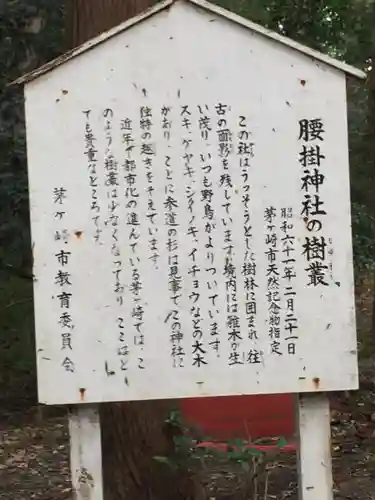 腰掛神社の樹叢
昭和六十一年二月二十一日
茅ヶ崎市天然記念物指定
この社はうっそうとした樹林に囲まれ、往
古の面影を残しています。境内には雑木が生
い茂り、いつも野鳥がよりついています。
スギ、ケヤキ、シイノキ、イチョウなどの大木
があり、ことに参道の杉は見事で、この神社に
独特の趣きをそえています。
近年、都市化の進んでいる茅ヶ崎では、こ
のような樹叢は少なくなっており、ここはと
ても貴重なところです。
茅ヶ崎市教育委員会